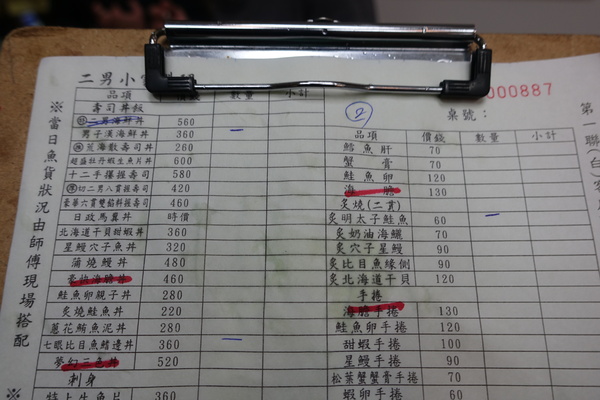 二男小
品項 價錢 數量 小計
壽司丼飯
二男海鮮丼 560
男子漢海鮮丼 360
荒海散壽司丼 260
超盛牡丹蝦生魚片丼 600
十二手握握壽司 580
切二男八貫握壽司 420
豪華六貫雙餡料握壽司 460
日政馬糞丼 時價
北海道干貝甜蝦丼 360
星鰻穴子魚丼 320
蒲燒鰻丼 480
豪快海膽丼 460
鮭魚卵親子丼 280
炙燒鮭魚丼 220
蔥花鮪魚泥丼 280
七眼比目魚鰭邊丼 360
夢幻三色丼 520
刺身
特上生魚片 360
※當日魚貨狀況由師傅現場搭配
※
000887
②
桌號：
品項 價錢 數量 小計
鱈魚肝 70
蟹膏 70
鮭魚卵 120
海膽 130
炙燒(二貫)
炙明太子鮭魚 60
炙奶油海鱺 70
炙穴子星鰻 90
炙比目魚緣側 90
炙北海道干貝 120
手捲
海膽手捲 130
鮭魚卵手捲 120
甜蝦手捲 100
星鰻手捲 90
松葉蟹蟹膏手捲 70
蝦卵手捲 60
第一聯(白)